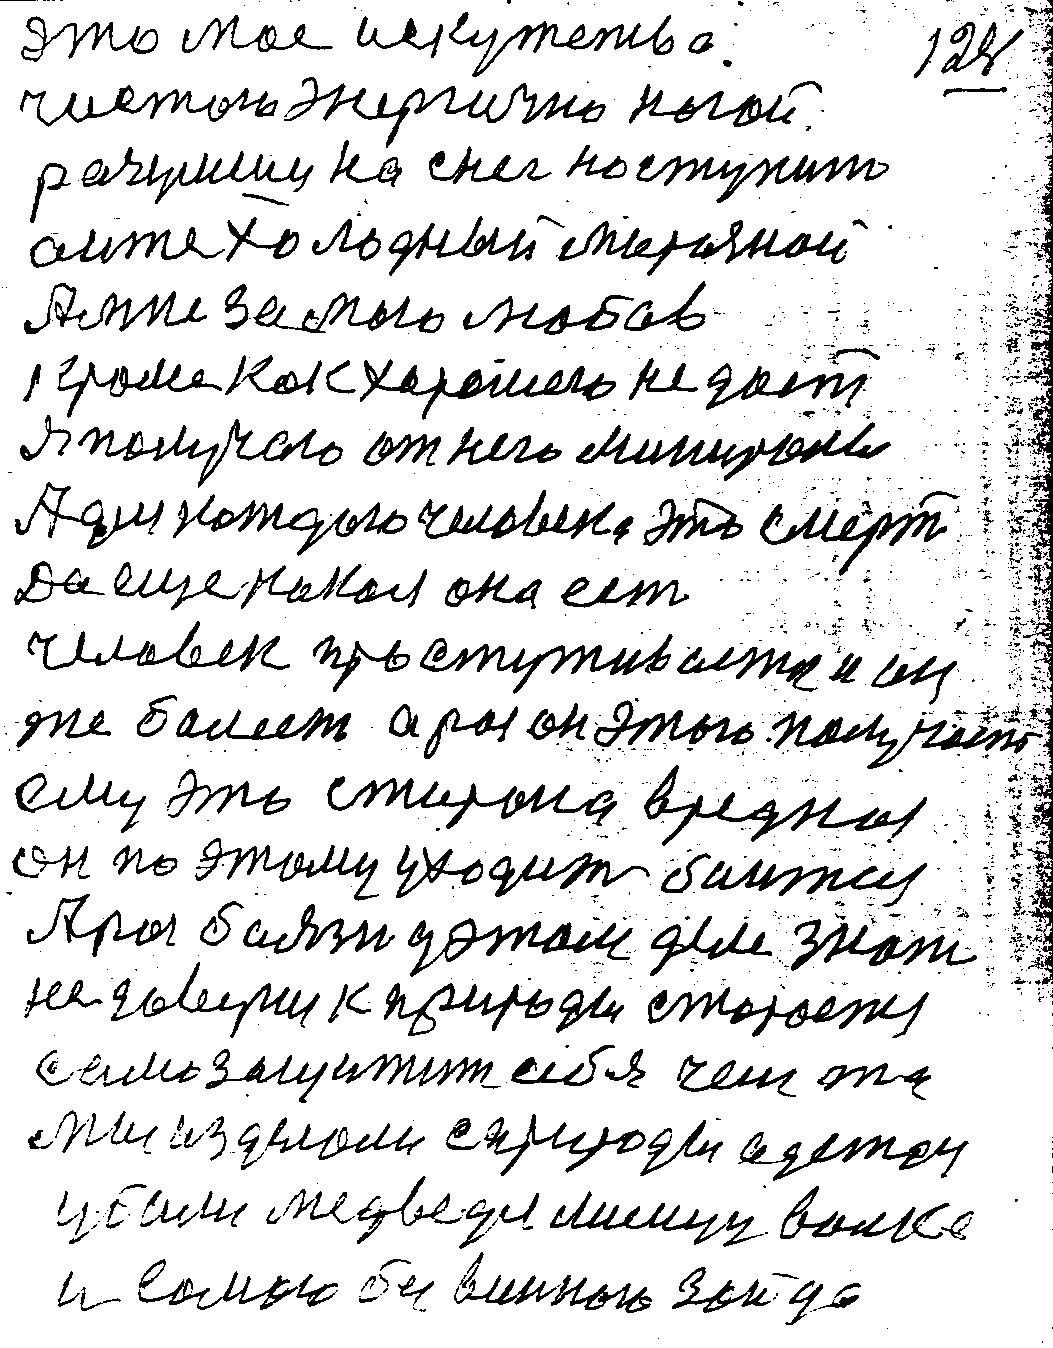 это мое искуство. 128
чистою энергично ногой
на снег ноступит
холодный
А мне за мою любов
кроме как хорошего не дает
Я получаю от него
А для каждого человека это смерт
Да еще какая она ест
человек простуживается и он
же болеет а раз он этого получает
ему это сторона вредная
он по этому уходит боится
А раз боязн у этом деле знат
не доверия к природы стараетя
само защитит себя чем та
мы из делали с природы адежду
убили медведя лисицу волка
и самою бы винною зайца